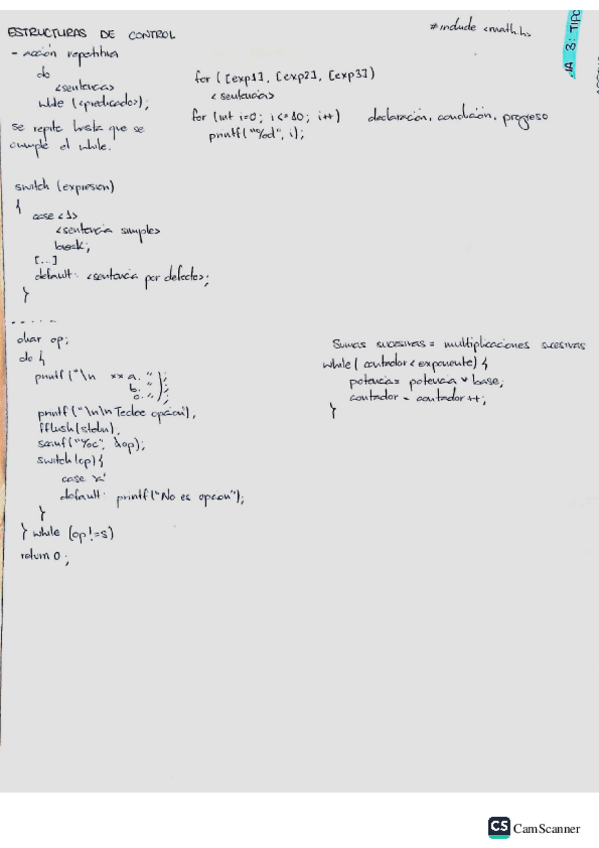 ESTRUCTURAS DE CONTROL
#include <math.h>
- acción repetitiva
do
<sentencia>
while (<predicado>);
se repite hasta que se
cumple el while.
for ([exp1], [exp2], [exp3])
<sentencia>
for (int i=0; i<=10; i++) declaración, condición, progreso
printf("%d", i);
switch (expresion)
{
case <1>
<sentencia simple>
break;
[...]
default: <sentencia por defecto>;
}
-----
char op;
do {
printf("\n ** a. ");
b. ");
c. ");
printf("\n\n Teclee opcion),
fflush(stdin),
scanf("%c", &op);
switch(op){
case 'a'
default: printf("No es opcion");
}
} while (op!=s)
return 0;
Sumas sucesivas = multiplicaciones sucesivas
while( contador < exponente) {
potencia= potencia * base;
contador = contador++;
}
JA 3: TIPO
CS CamScanner